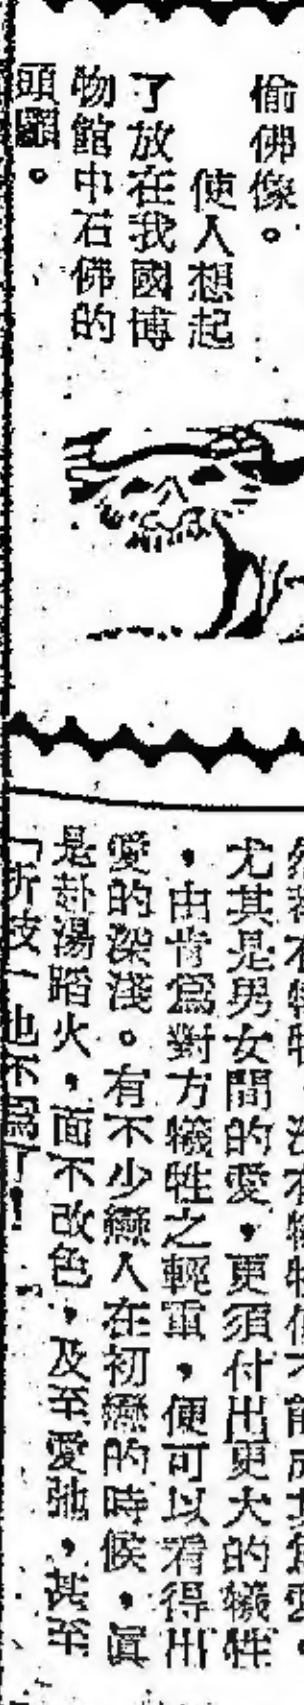 偷佛像。
使人想起
了放在我國博
物館中石佛的
頭顱。
尤其是男女間的愛，更須付出更大的犧牲
，由肯為對方犧牲之輕重，便可以看得出
愛的深淺。有不少戀人在初戀的時候，眞
是赴湯蹈火，面不改色，及至愛弛，甚至
「折枝」也不爲了！